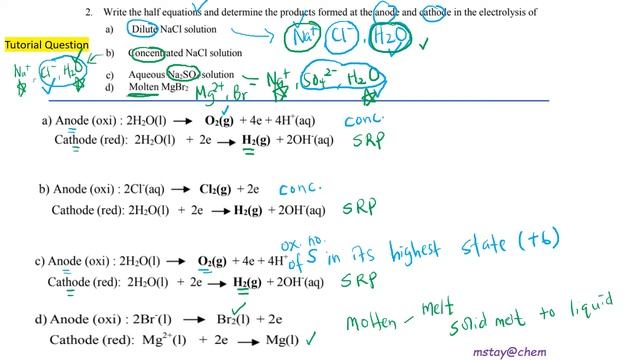 2. Write the half equations and determine the products formed at the anode and cathode in the electrolysis of
a) Dilute NaCl solution Na⁺, Cl⁻, H₂O
Tutorial Question
b) Concentrated NaCl solution
Na⁺, Cl⁻, H₂O
c) Aqueous Na₂SO₄ solution = Na⁺, SO₄²⁻, H₂O
d) Molten MgBr₂ Mg²⁺, Br
a) Anode (oxi) : 2H₂O(l) → O₂(g) + 4e + 4H⁺(aq) conc.
Cathode (red): 2H₂O(l) + 2e → H₂(g) + 2OH⁻(aq) SRP
b) Anode (oxi) : 2Cl⁻(aq) → Cl₂(g) + 2e conc.
Cathode (red): 2H₂O(l) + 2e → H₂(g) + 2OH⁻(aq) SRP
c) Anode (oxi) : 2H₂O(l) → O₂(g) + 4e + 4H⁺ ox. no. of S in its highest state (+6)
Cathode (red): 2H₂O(l) + 2e → H₂(g) + 2OH⁻(aq) SRP
d) Anode (oxi) : 2Br⁻(l) → Br₂(l) + 2e
Cathode (red): Mg²⁺(l) + 2e → Mg(l)
molten – melt
solid melt to liquid
mstay@chem